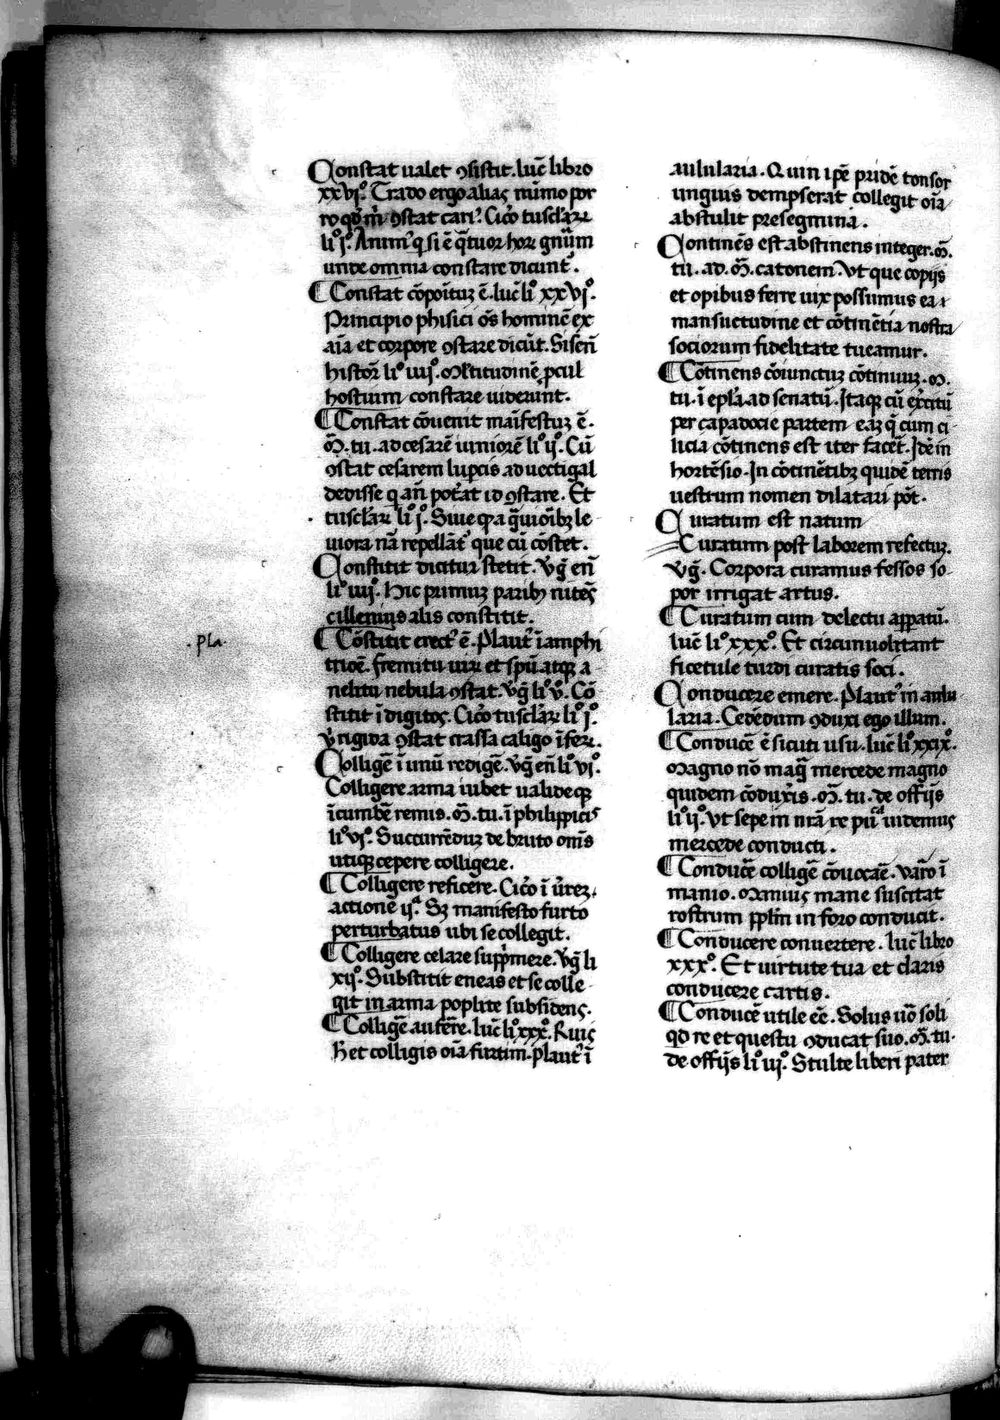 Constat ualet ɔsistit. luc̄ libro
xxvjº. Trado ergo alias nūmo por
ro qd̄ m̄ ɔstat cari'. Cic̄o tuscl̄aꝝ
liº jº. Anim' q si ē q̄tuor hoꝝ gn̄um
unde omnia constare dicunt'.
¶ Constat cōpoītuꝫ ē. luc̄ liº xxvjº.
Principio phisici oēs hominē ex
aīa et corpore ɔstare dicūt. Siseñ
histoꝝ liº iiijº. Ml̄titudinē ꝓcul
hostium constare uiderunt.
¶ Constat cōuenit maīfestuꝫ ē.
M̄. tu. ad cesarē iuniorē liº ijº. Cū
ɔstat cesarem lupcis ad uectigal
dedisse q añ pot'at id ɔstare. Et
tuscl̄aꝝ liº jº. Siue ꝓpa
uiora nā repellāt' que cū cōstet.
Constitit dicitur stetit. Vḡ eñ
liº iiijº. Hic primuꝫ paribꝫ nitēs
cillenius alis constitit.
¶ Cōstitit erect' ē. Plaut' ī amphi
trioē. fremitu uiꝝ et spū atqꝫ a
nelitu nebula ɔstat. Vḡ liº vº. Cō
stitit ī digitos. Cic̄o tuscl̄aꝝ liº jº.
Vꝰrigida ɔstat crassa caligo īfeꝝ.
Colligē ī unū redigē. Vḡ eñ liº vjº.
Colligere arma iubet ualideqꝫ
īcumbē remis. M̄. tu. ī philippicis
liº vjº. Succurrēduꝫ de bruto om̄s
utiqꝫ cepere colligere.
¶ Colligere reficere. Cic̄o ī u'reꝫ.
actionē ijª. Sꝫ manifesto furto
perturbatus ubi se collegit.
¶ Colligere celare supp̄mere. Vḡ li
xijº. Substitit eneas et se colle
git in arma poplite subsidens.
¶ Colligē auferre. luc̄ liº xxxº. Ruis
Het colligis oīa furtim. plaut' ī
.pla.
aulularia. Quin ipē pridē tonsor
unguis dempserat collegit oīa
abstulit presegmina.
Continēs est abstinens integer. M̄.
tu. ad. M̄. catonem. Vt que copijs
et opibus ferre uix possumus ea ı
mansuetudine et cōtinētia nostra
sociorum fidelitate tueamur.
¶ Cōtinens cōiunctuꝫ cōtinuuꝫ. M.
tu. ī epl̄a ad senatū. Itaqꝫ cū ex'citū
per capadocie partem eaꝫ q̄ cum ci
licia cōtinens est iter facē. Idē in
hortēsio. In cōtinētibꝫ quidē terris
uestrum nomen dilatari pōt.
Curatum est natum
Curatum post laborem refectuꝫ.
Vḡ. Corpora curamus fessos so
por irrigat artus.
¶ Curatum cum delectu apparatū.
luc̄ liº xxxº. Et circumuolitant
ficetule turdi curatis soci.
Conducere emere. Plaut' in aulu
laria. Cededum ɔduxi ego illum.
¶ Conducē ē sicuti usu. luc̄ liº xxixº.
Magno nō maq̄ mercede magno
quidem cōdux'is. M̄. tu. de offijs
liº ijº. Vt sepe in nr̄a re pu.ᶜᵃ uidemus
mercede conducti.
¶ Conducē colligē cōuocāē. Varro ī
manio. Manius mane suscitat
rostrum ppl̄m in foro conducit.
¶ Conducere conuertere. luc̄ libro
xxxº. Et uirtute tua et claris
conducere cartis.
¶ Conducē utile eē. Solus uō soli
qd re et questu ɔducat suo. M̄. tu.
de offijs liº iijº. Stulte liberi pater